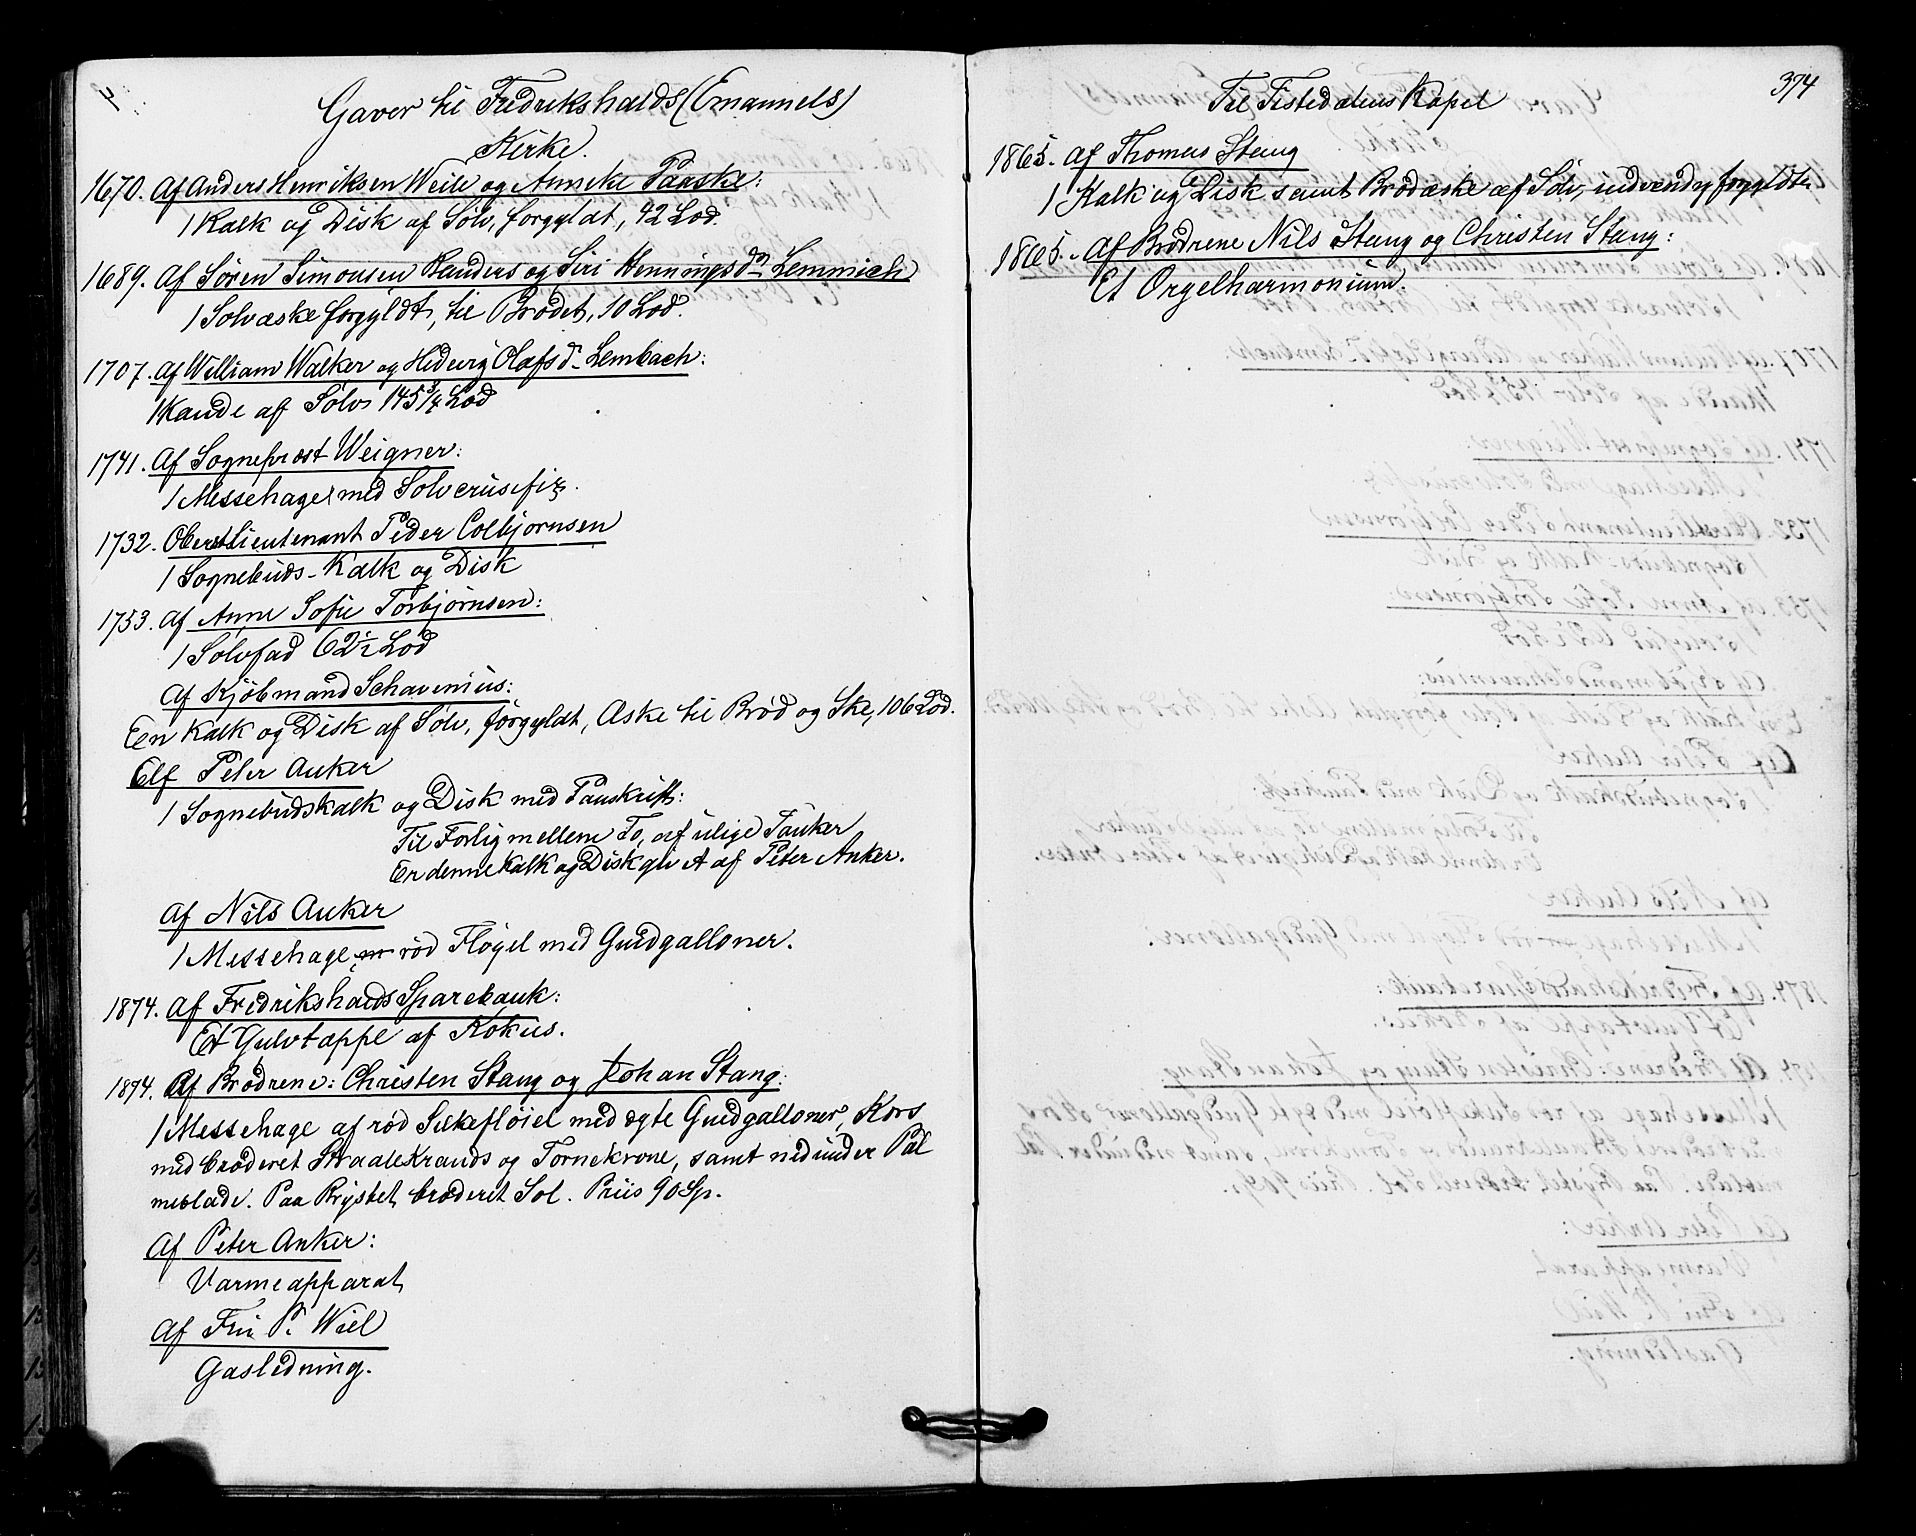 Gaver til Fredrikshalds (Emanuels)
Kirke.
1670. Af Anders Henriksen Weile og Anneke Paaske:
1 Kalk og Disk af Sölv, forgyldt, 42 Lod.
1689. Af Sören Simonsen Randers og Siri Hennings dr. Lemmich
1 Sölvæske forgyldt, til Brödet, 10 Lod.
1707. Af William Walker og Hedevig Olafs d. Lembach:
1 Kande af Sölv 145 3/4 Lod
1741. Af Sognepræst Weigner:
1 Messehagel med Sölvcrusifix.
1732. Oberstlieutenant Peder Colbjørnsen
1 Sognebuds-Kalk og Disk
1753. Af Anne Sofie Torbjørnsen:
1 Sölvfad 62 1/2 Lod
Af Kjöbmand Schavenius:
En Kalk og Disk af Sölv, forgyldt, Æske til Bröd og Ske, 106 Lod.
Af Peter Anker
1 Sognebudskalk og Disk med Paaskrift:
Til Forlig mellem To, af ulige Tanker
Er denne Kalk og Disk givet af Peter Anker.
Af Nils Anker
1 Messehage m röd Flöyel med Guldgalloner.
1874. Af Fredrikshalds Sparebank:
Et Gulvtæppe af Kokus.
1874. Af Brödrene: Christen Stang og Johan Stang:
1 Messehage af röd Silkeflöiel med ægte Guldgalloner, Kors
med broderet Straalekrands og Tornekrone, samt nedunder Pal
meblade. Paa Brystet broderet Sol. Priis 90 Sp.
Af Peter Anker:
Varmeapparat
Af Fru P. Wiel
Gasledning.
374
Til Tistedalens Kapel
1865. Af Thomas Stang
1 Kalk og Disk samt Brödæske af Sölv, indvendig forgyldte
1865. Af Brödrene Nils Stang og Christen Stang:
Et Orgelharmonium.